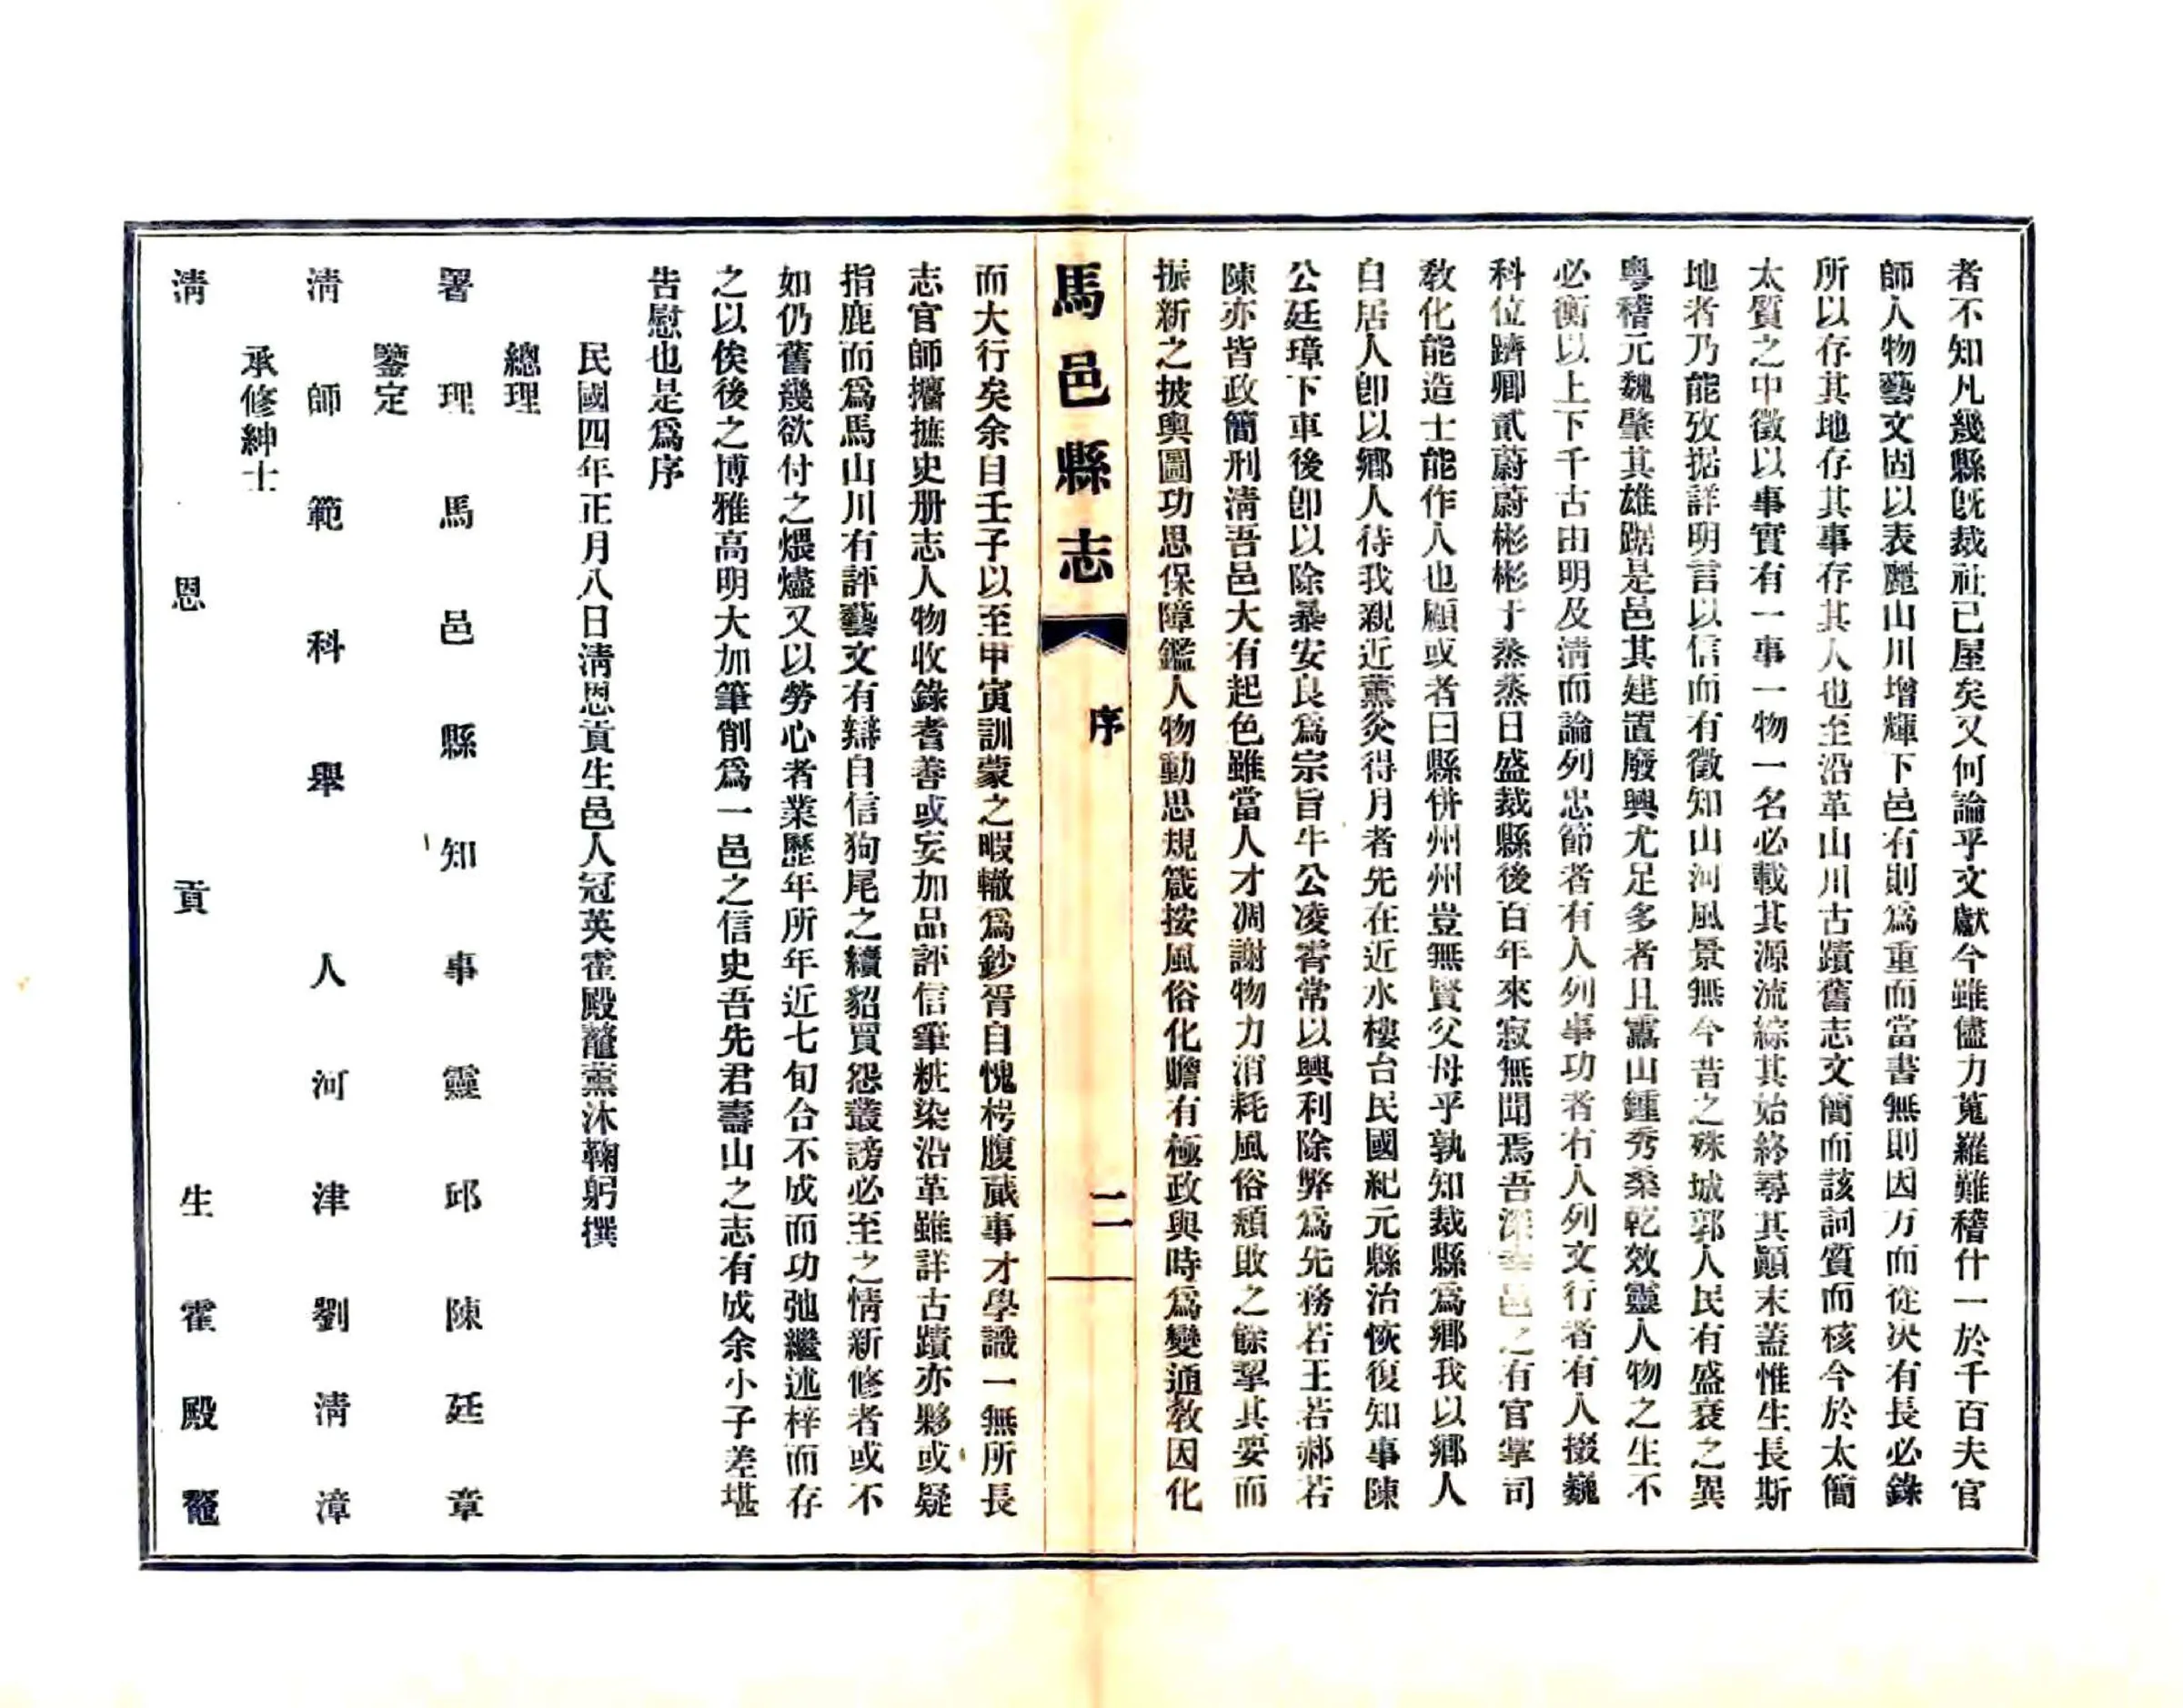 者不知凡幾縣旣裁社已屋矣又何論乎文獻今雖儘力蒐羅難稽什一於千百夫官
師人物藝文固以表麗山川增輝下邑有則爲重而當書無則因方而從決有長必錄
所以存其地存其事存其人也至沿革山川古蹟舊志文簡而該詞質而核今於太簡
太質之中徵以事實有一事一物一名必載其源流綜其始終尋其顚末蓋惟生長斯
地者乃能攷据詳明言以信而有徵知山河風景無今昔之殊城郭人民有盛衰之異
粵稽元魏肇其雄踞是邑其建置廢興尤足多者且靈山鍾秀桑乾效靈人物之生不
必衡以上下千古由明及淸而論列忠節者有人列事功者有人列文行者有人掇巍
科位躋卿貳蔚蔚彬彬于烝烝日盛裁縣後百年來寂無聞焉吾深幸邑之有官掌司
敎化能造士能作人也顧或者曰縣併州州豈無賢父母乎孰知裁縣爲鄕我以鄕人
自居人卽以鄕人待我親近薰炙得月者先在近水樓台民國紀元縣治恢復知事陳
公廷璋下車後卽以除暴安良爲宗旨牛公凌霄常以興利除弊爲先務若王若郝若
陳亦皆政簡刑淸吾邑大有起色雖當人才凋謝物力消耗風俗頹敗之餘挈其要而
振新之披輿圖功思保障鑑人物動思規箴按風俗化贍有極政與時爲變通敎因化
馬邑縣志
序
二
而大行矣余自壬子以至甲寅訓蒙之暇輒爲鈔胥自愧枵腹蕆事才學識一無所長
志官師攟摭史册志人物收錄耆善或妄加品評信筆粧染沿革雖詳古蹟亦夥或疑
指鹿而爲馬山川有評藝文有辯自信狗尾之續貂買怨叢謗必至之情新修者或不
如仍舊幾欲付之煨燼又以勞心者業歷年所年近七旬合不成而功弛繼述梓而存
之以俟後之博雅高明大加筆削爲一邑之信史吾先君壽山之志有成余小子差堪
告慰也是爲序
民國四年正月八日淸恩貢生邑人冠英霍殿鼇薰沐鞠躬撰
總理
署理馬邑縣知事靈邱陳廷章
鑒定
淸師範科舉人河津劉淸漳
承修紳士
淸恩貢生霍殿鼇